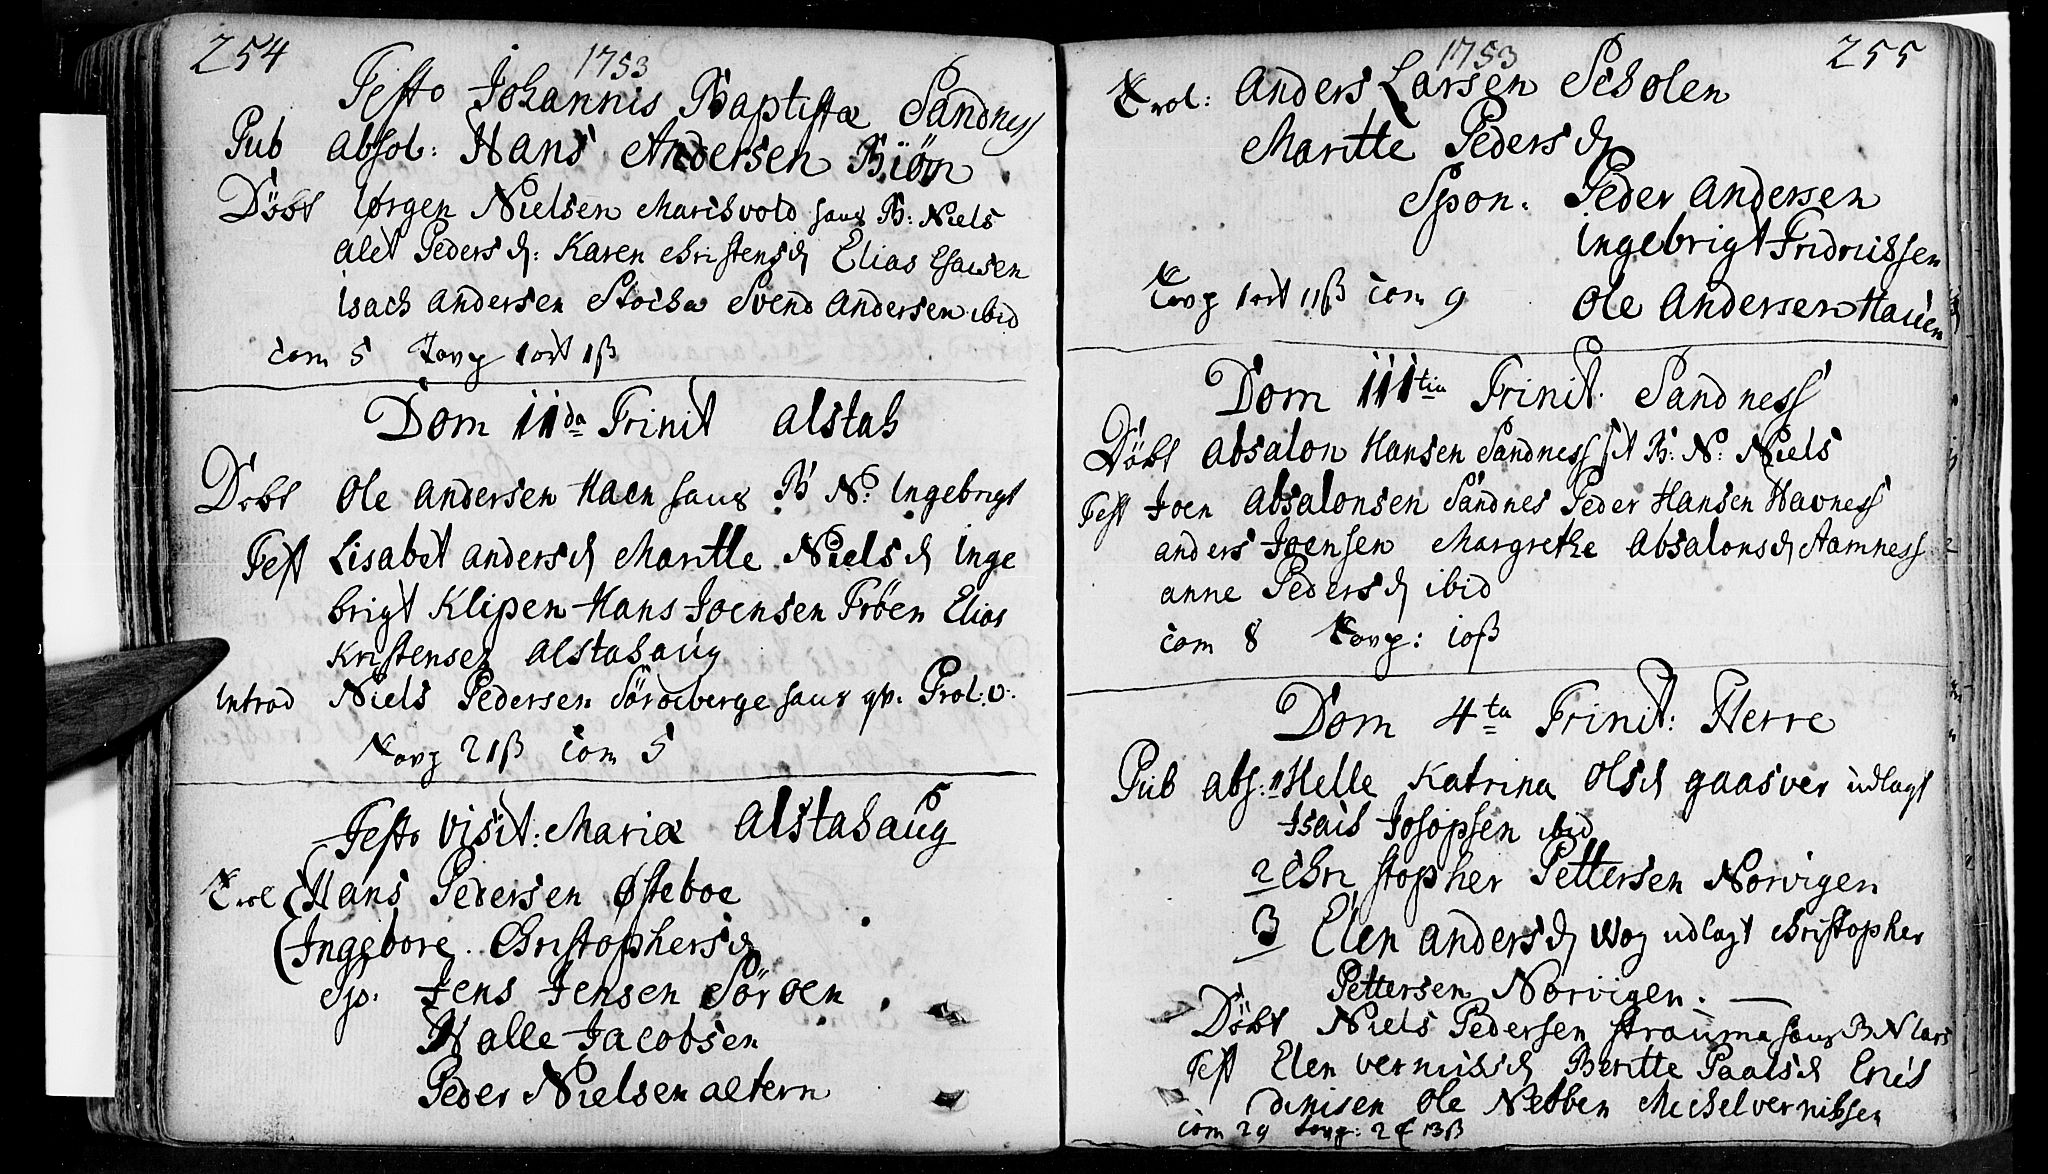 254
1753
Festo Johannis Baptistæ Sandness
Pub absol: Hans Andersen Biön
Döbt Jörgen Nielsen Marisvold B: Niels
Alet Pedersd: Karen Christensd Elias Esaisen
Isach Andersen Stocka Svend Andersen ibid
Com 5 Tavg 1 ort 1ß
Dom IIda Trinit Alstah
Döbt Ole Andersen Haen B N: Ingebrigt
Test Lisabet Andersd Maritte Nielsd Inge
brigt Klipen Hans Joensen Tröen Elias
Kristensen Alstahaug
Introd Niels Pedersen Trol: v:
Tavg 21ß Com 5
Festo Visit: Mariæ Alstahaug
Trol Hans Pedersen Østeboe
Ingeborre Christophersd
Sp. Jens Jensen Söröen
Halle Jacobsen
Peder Nielsen altern
1753
255
Trol: Anders Larsen Scholen
Maritte Pedersd
Spon. Peder Andersen
Ingebrigt Fridrichsen
Tavg 1 ort 11ß Com 9 Ole Andersen Hauen
Dom IIItia Trinit. Sandness
Döbt Absalon Hansen Sandness B: N: Niels
Test Joen Absalonsen Sandnes Peder Hansen Havness
Anders Joensen Margrethe Absalonsd Hamness
Anne Pedersd ibid
Com 8 Tavg: 10ß
Dom 4ta Trinit: Herre
Pub abs: 1 Helle Katrina Olsd Gaasvær udlagt
Isach Josopsen ibid
2 Christopher Pettersen Norvigen
3 Elen Andersd Wog udlagt Christopher
Pettersen Norvigen.
Döbt Niels Pedersen Strauma B N Lars
Test Elen Vernissd Beritte Paalsd Eric
Dinisen Ole Nebben Michel Vernissen
Com 29 Tavg: 2 13ß